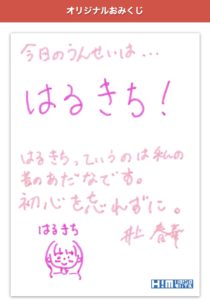 オリジナルおみくじ
今日のうんせいは...
はるきち!
はるきちっていうのは私の
昔のあだなです。
初心を忘れずに。
はるきち
井上春華